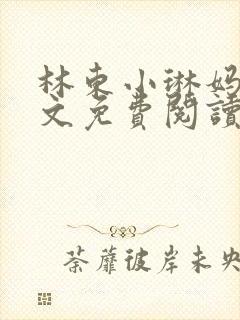 林東小琳妈
文免費閱讀
荼蘼彼岸未央